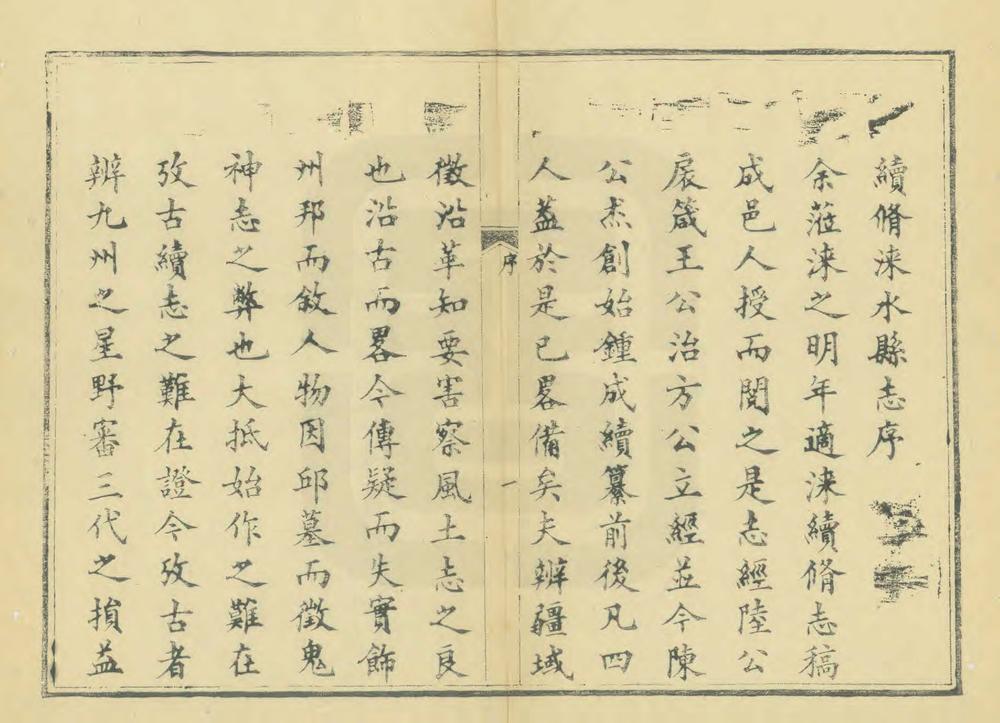 續脩淶水縣志序
余蒞淶之明年適淶續脩志稿
成邑人授而閱之是志經陸公
扆箴王公治方公立經並今陳
公杰創始鍾成續纂前後凡四
人葢於是已畧備矣夫辨疆域
序
一
徵沿革知要害察風土志之良
也沿古而畧今傳疑而失實飾
州邦而敘人物因邱墓而徵鬼
神志之弊也大抵始作之難在
攷古續志之難在證今攷古者
辨九州之星野審三代之損益